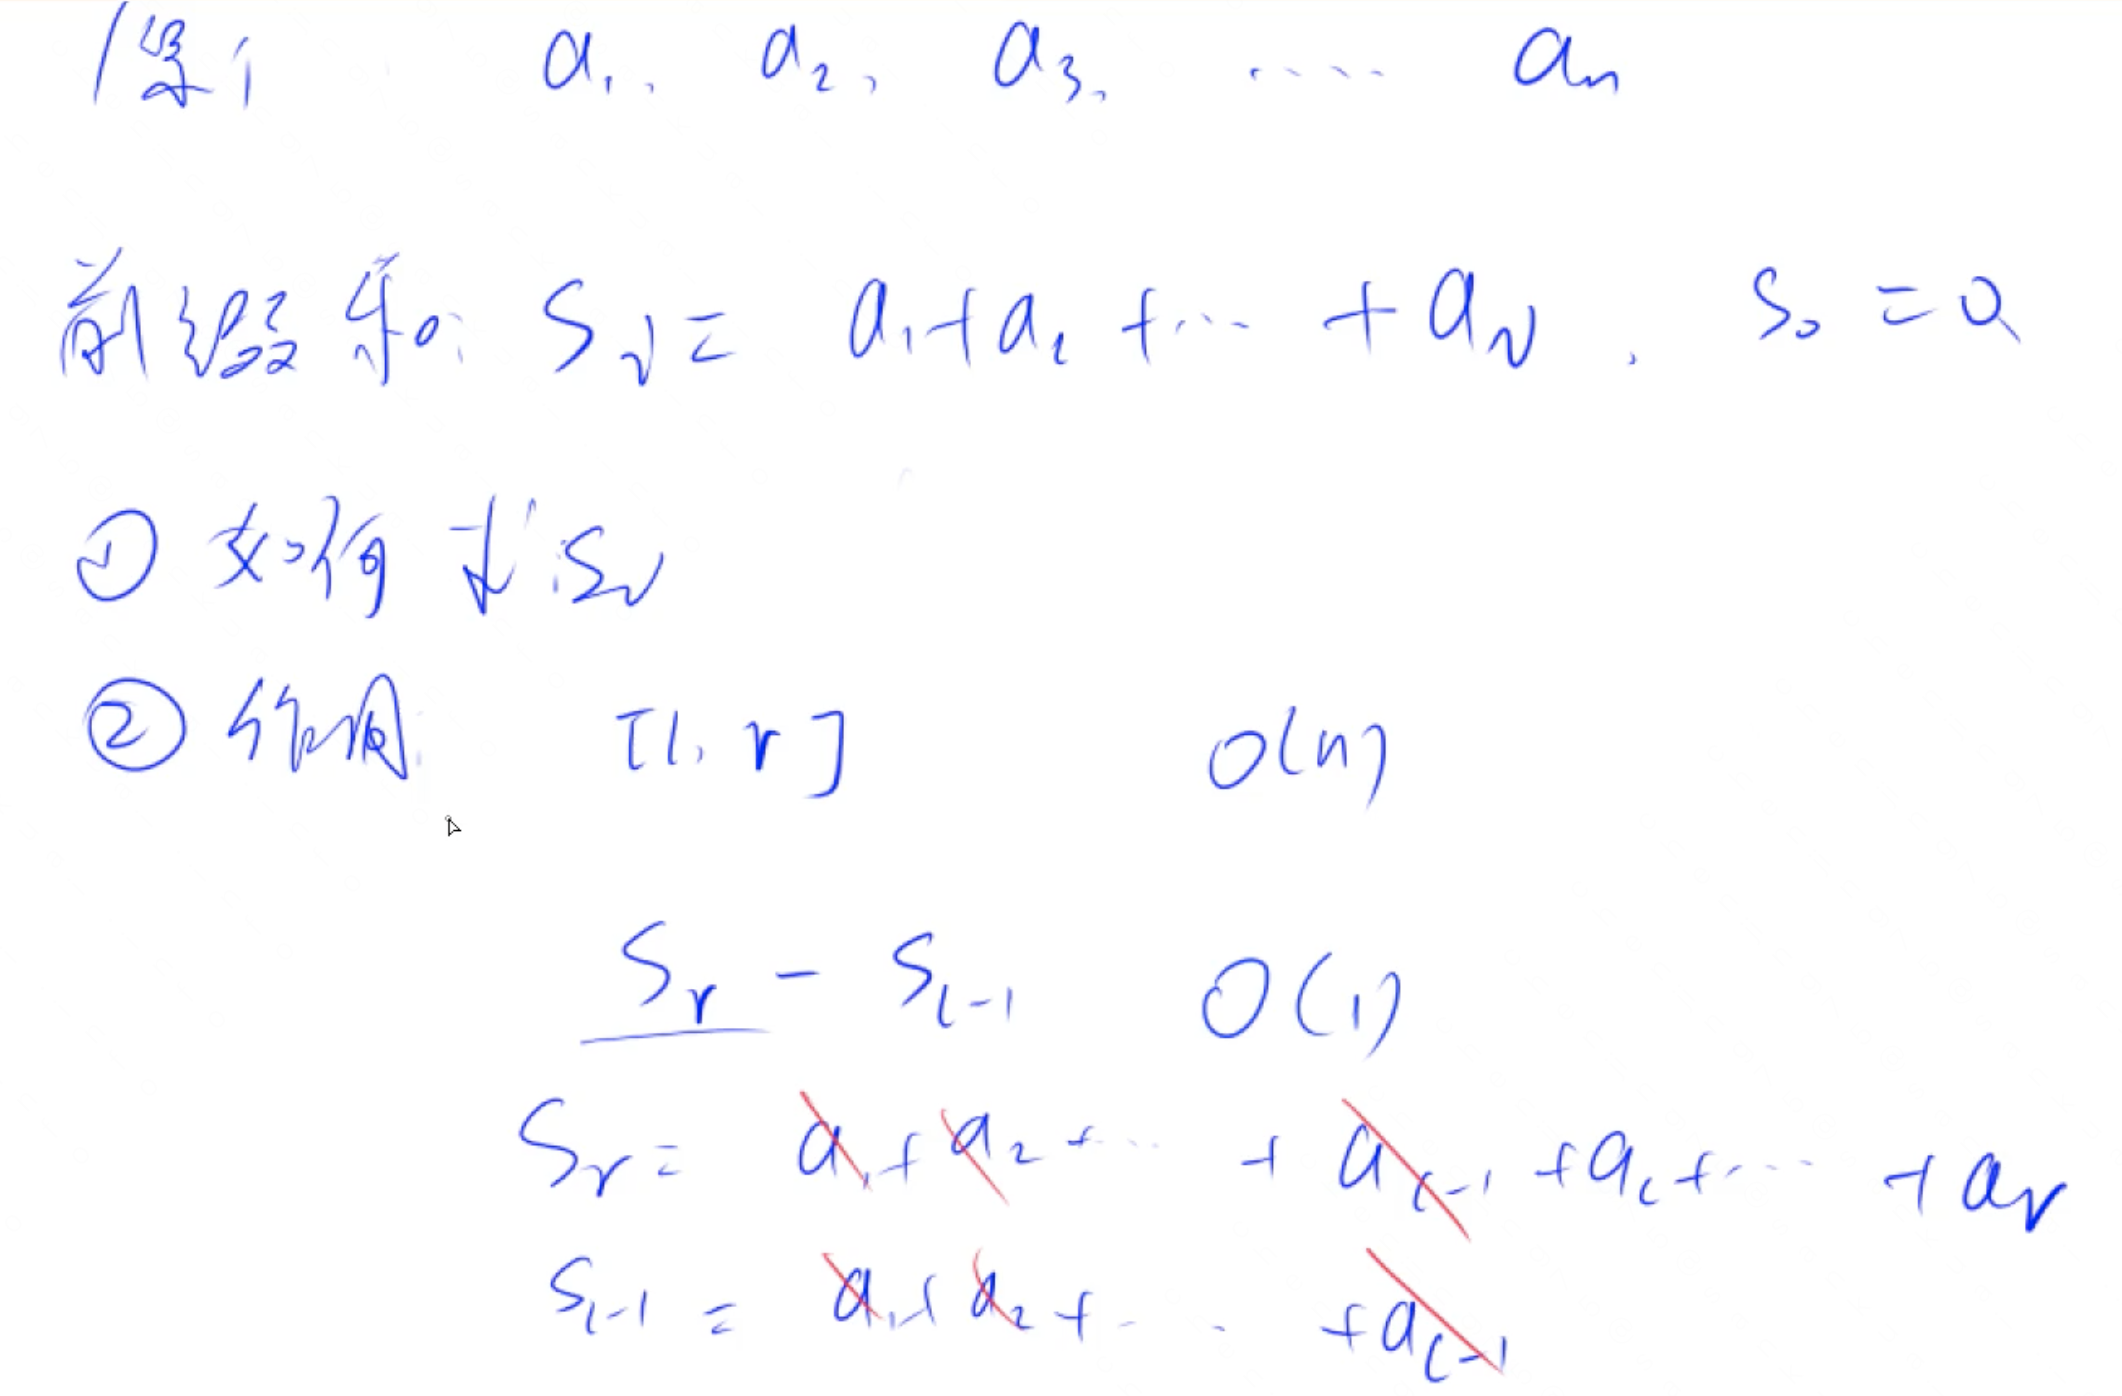 原 a₁, a₂, a₃, ..... aₙ
前缀和: Sᵢ = a₁+a₂ +... + aᵢ. S₀ = 0
① 如何求Sᵢ
② 作用: [l, r] O(n)
Sᵣ - Sₗ₋₁ O(1)
Sᵣ = a₁+a₂+... + aₗ₋₁ +aₗ+... + aᵣ
Sₗ₋₁ = a₁+a₂+... +aₗ₋₁